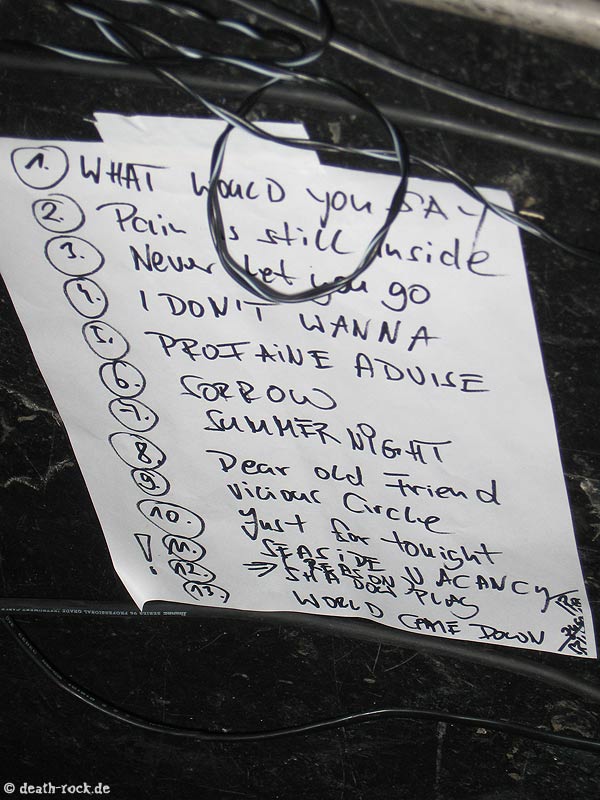 1. WHAT WOULD YOU SAY
2. Pain is still inside
3. Never let you go
4. I DON'T WANNA
5. PROFAINE ADVISE
6. SORROW
7. SUMMER NIGHT
8. Dear old Friend
9. vicious Circle
10. Just for tonight
11. SEASIDE VACANCY
! 12. => SHADOW PLAY
13. WORLD CAME DOWN
© death-rock.de